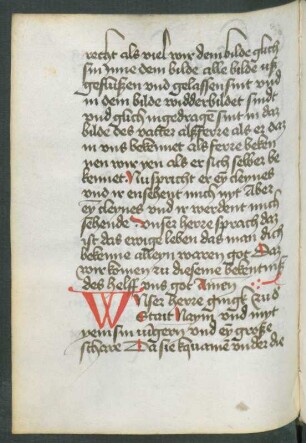 recht als viel wir dem bilde glich
sin Inne dem bilde alle bilde uß
geflußen vnd gelassen sint vnd
in dem bilde widderbildet sindt
vnd glich ingedrage sint in daz
bilde des vatter alsferre als er daz
in vns bekennet als ferre beken
nen wir yen als er sich selber be
kennet Nu spricht er ey cleynes
vnd ir ensehent mich nyt Aber
ey cleynes vnd ir werdent mich
sehende Vnser herre sprach daz
ist das ewige leben das man dich
bekenne alleyn waren got Daz
wir komen zu dieseme bekentniß
des helff vns got Amen
Vnser herre gingk zu d
statt Naym vnd myt
yem sin Iungern vnd ey große
schare Da sie quamen vnder die